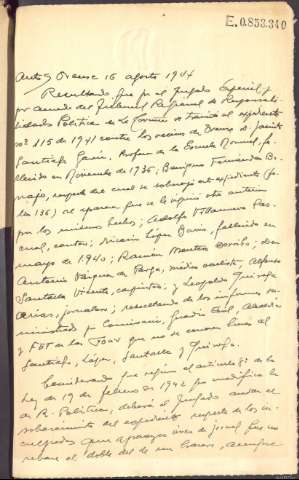 E.0.853.340
Auto/ Orense 16 agosto 1944
Resultando que por el Juzgado Especial, y
por acuerdo del Tribunal Regional de Responsabi-
lidades Políticas de La Coruña se tramitó el expediente
nº 115 de 1941 contra los vecinos de Orense D. Jacinto
Santiago García, Profesor de la Escuela Normal, fa-
llecido en Noviembre de 1936, Benigno Fernández
respecto del cual se sobreseyó este expediente (fo-
lio 136) al aparecer que se le siguió otro anterior
por los mismos hechos; Adolfo Villanueva
cantero; López fallecido en
mayo de 1940; Ramón Montero don
Antonio Vázquez de Parga, médico oculista, Alfonso
Santalla Vicente, carpintero, y Leopoldo Quiroga
jornalero; resultando de los informes su-
ministrados por Comisaría, Guardia Civil, Alcaldía
y FET de las JONS que no se conocen bienes al
Santiago, López, Santalla y Quiroga.
Considerando que según el artículo 8º de la
Ley de 19 de febrero de 1942 que modifica la
de R. Políticas, deberá el Juzgado acordar el
sobreseimiento del expediente respecto de los in-
culpados que
rebase el doble del de un bracero, aunque